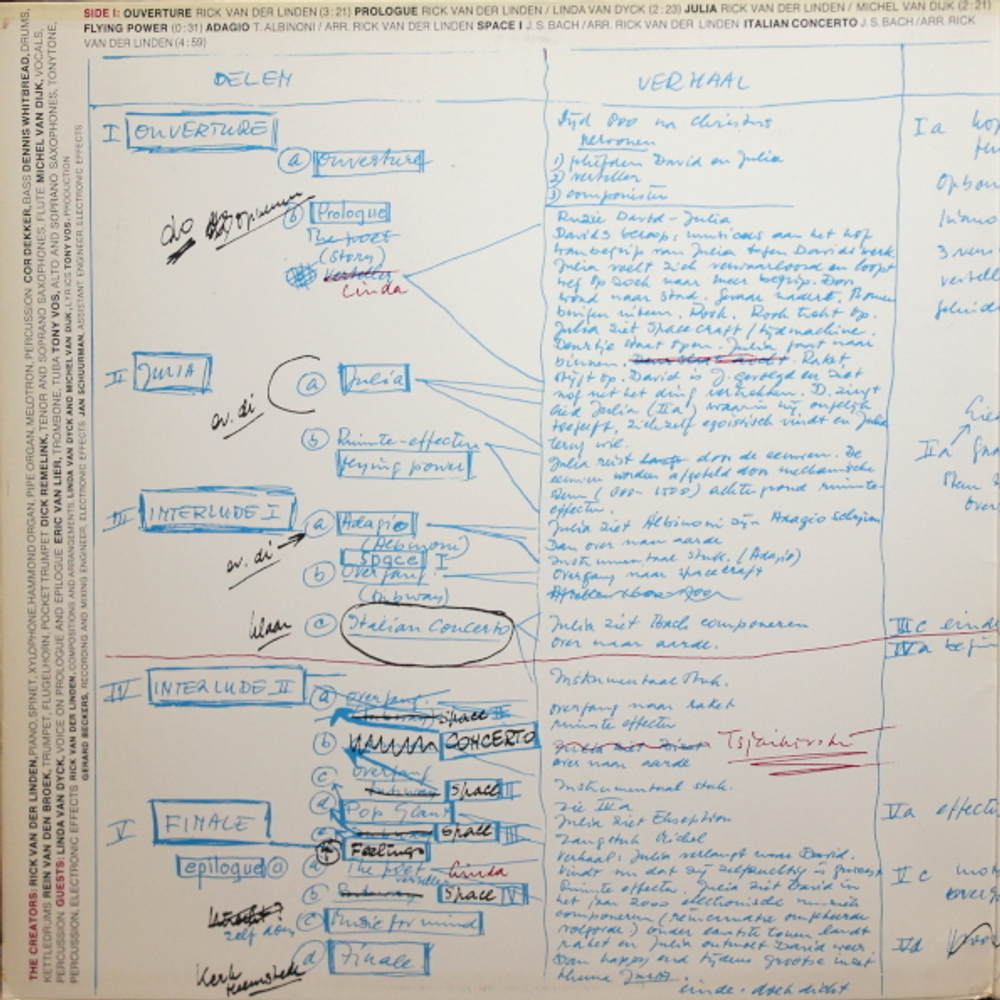 SIDE I: OUVERTURE RICK VAN DER LINDEN (3:21) PROLOGUE RICK VAN DER LINDEN / LINDA VAN DYCK (2:23) JULIA RICK VAN DER LINDEN / MICHEL VAN DIJK (2:21)
FLYING POWER (0:31) ADAGIO T. ALBINONI / ARR. RICK VAN DER LINDEN SPACE I J.S. BACH / ARR. RICK VAN DER LINDEN ITALIAN CONCERTO J.S. BACH / ARR. RICK
VAN DER LINDEN (4:59)
THE CREATORS: RICK VAN DER LINDEN, PIANO, SPINET, XYLOPHONE, HAMMOND ORGAN, PIPE ORGAN, MELOTRON, PERCUSSION COR DEKKER, BASS DENNIS WHITBREAD, DRUMS,
KETTLEDRUMS REIN VAN DEN BROEK, TRUMPET, FLUGELHORN, POCKET TRUMPET DICK REMELINK, TENOR AND SOPRANO SAXOPHONES, FLUTE MICHEL VAN DIJK, VOCALS,
PERCUSSION GUESTS: LINDA VAN DYCK, VOICE ON PROLOGUE AND EPILOGUE ERIC VAN LIER, TROMBONE, TUBA TONY VOS, ALTO AND SOPRANO SAXOPHONES, TONYTONE,
PERCUSSION, ELECTRONIC EFFECTS RICK VAN DER LINDEN, COMPOSITIONS AND ARRANGEMENTS LINDA VAN DYCK AND MICHEL VAN DIJK, LYRICS TONY VOS, PRODUCTION
GERARD BECKERS, RECORDING AND MIXING ENGINEER, ELECTRONIC EFFECTS JAN SCHUURMAN, ASSISTANT ENGINEER, ELECTRONIC EFFECTS
DELEN
VERHAAL
I OUVERTURE
a ouverture
b Prologue
The poet
(story)
Verteller
Linda
II JULIA
a Julia
ev. di
b Ruimte-effecten
flying power
III INTERLUDE I
a Adagio
(Albinoni)
ev. di
Space I
b Overgang
(subway)
klaar
c Italian Concerto
IV INTERLUDE II
a overgang
(subway) Space II
b CONCERTO
c overgang
subway Space II
d Pop Giant
e subway Space III
f Feelings
V FINALE
epilogue a The poet
verteller Linda
b subway Space IV
zelf doen
c Music for mind
d Finale
Kerk Heemstede
Tijd 000 na Christus
personen
1) geliefden David en Julia
2) verteller
3) componisten
Ruzie David - Julia
Davids beroep, musicus aan het hof
onbegrip van Julia tegen Davids werk
Julia voelt zich verwaarloosd en loopt
weg op zoek naar meer begrip. Door
woud naar stad. Gevaar nadert. Bomen
buigen uiteen. Rook. Rook trekt op.
Julia ziet Space craft / tijdmachine.
Deurtje staat open. Julia gaat naar
binnen. Raket
stijgt op. David is J. gevolgd en ziet
nog net het ding vertrekken. D. zingt
lied Julia (IIa) waarin hij ongelijk
toegeeft, zichzelf egoistisch vindt en Julia
terug wil.
Julia reist door de eeuwen. De
eeuwen worden afgeteld door mechanische
stem (000-1500) achtergrond ruimte-
effecten.
Julia ziet Albinoni zijn Adagio schrijven
Dan over naar aarde
Instrumentaal stuk. (Adagio)
Overgang naar spacecraft
Julia ziet Bach componeren
over naar aarde.
Instrumentaal stuk.
overgang naar raket
ruimte effecten
Tsjaikovski
over naar aarde
Instrumentaal stuk.
zie IIIa
Julia ziet Ekseption
Zangstuk Michel
Verhaal: Julia verlangt naar David.
Vindt nu dat zij zelfzuchtig is geweest
Ruimte effecten. Julia ziet David in
het jaar 2000 electronische muziek
componeren (reincarnatie omgekeerde
volgorde) onder laatste tonen landt
raket en Julia ontmoet David weer.
Dan happy end tijdens grootse inzet
thema
einde. doek dicht
Ia
3
IIa
over
IIIc einde
IVa begin
Va effecten
Vc
Vd